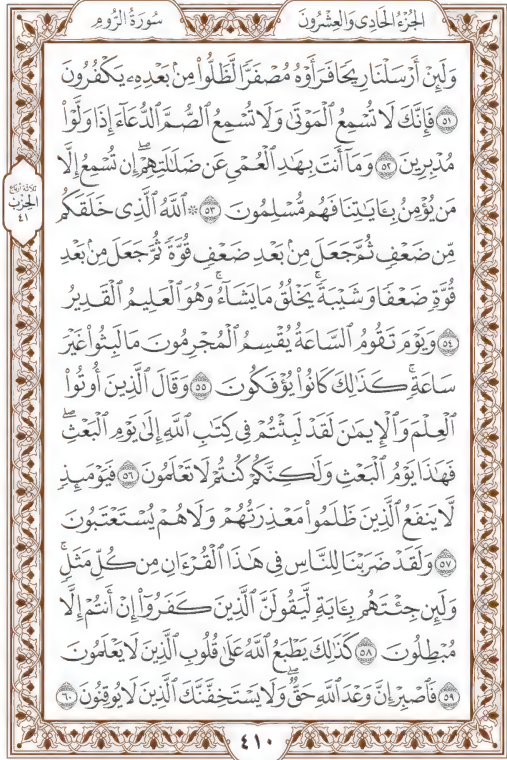 الجُزْءُ الحَادِى وَالعِشْرُونَ
سُورَةُ الرُّومِ
وَلَئِنْ أَرْسَلْنَا رِيحًا فَرَأَوْهُ مُصْفَرًّا لَّظَلُّوا۟ مِنۢ بَعْدِهِۦ يَكْفُرُونَ
٥١ فَإِنَّكَ لَا تُسْمِعُ ٱلْمَوْتَىٰ وَلَا تُسْمِعُ ٱلصُّمَّ ٱلدُّعَآءَ إِذَا وَلَّوْا۟
مُدْبِرِينَ ٥٢ وَمَآ أَنتَ بِهَٰدِ ٱلْعُمْىِ عَن ضَلَٰلَتِهِمْ ۖ إِن تُسْمِعُ إِلَّا
مَن يُؤْمِنُ بِـَٔايَٰتِنَا فَهُم مُّسْلِمُونَ ٥٣ ۞ ٱللَّهُ ٱلَّذِى خَلَقَكُم
ثلاثة أرباع
الحِزْب
٤١
مِّن ضَعْفٍ ثُمَّ جَعَلَ مِنۢ بَعْدِ ضَعْفٍ قُوَّةً ثُمَّ جَعَلَ مِنۢ بَعْدِ
قُوَّةٍ ضَعْفًا وَشَيْبَةً ۚ يَخْلُقُ مَا يَشَآءُ ۖ وَهُوَ ٱلْعَلِيمُ ٱلْقَدِيرُ
٥٤ وَيَوْمَ تَقُومُ ٱلسَّاعَةُ يُقْسِمُ ٱلْمُجْرِمُونَ مَا لَبِثُوا۟ غَيْرَ
سَاعَةٍ ۚ كَذَٰلِكَ كَانُوا۟ يُؤْفَكُونَ ٥٥ وَقَالَ ٱلَّذِينَ أُوتُوا۟
ٱلْعِلْمَ وَٱلْإِيمَٰنَ لَقَدْ لَبِثْتُمْ فِى كِتَٰبِ ٱللَّهِ إِلَىٰ يَوْمِ ٱلْبَعْثِ ۖ
فَهَٰذَا يَوْمُ ٱلْبَعْثِ وَلَٰكِنَّكُمْ كُنتُمْ لَا تَعْلَمُونَ ٥٦ فَيَوْمَئِذٍ
لَّا يَنفَعُ ٱلَّذِينَ ظَلَمُوا۟ مَعْذِرَتُهُمْ وَلَا هُمْ يُسْتَعْتَبُونَ
٥٧ وَلَقَدْ ضَرَبْنَا لِلنَّاسِ فِى هَٰذَا ٱلْقُرْءَانِ مِن كُلِّ مَثَلٍ ۚ
وَلَئِن جِئْتَهُم بِـَٔايَةٍ لَّيَقُولَنَّ ٱلَّذِينَ كَفَرُوٓا۟ إِنْ أَنتُمْ إِلَّا
مُبْطِلُونَ ٥٨ كَذَٰلِكَ يَطْبَعُ ٱللَّهُ عَلَىٰ قُلُوبِ ٱلَّذِينَ لَا يَعْلَمُونَ
٥٩ فَٱصْبِرْ إِنَّ وَعْدَ ٱللَّهِ حَقٌّ ۖ وَلَا يَسْتَخِفَّنَّكَ ٱلَّذِينَ لَا يُوقِنُونَ ٦٠
٤١٠